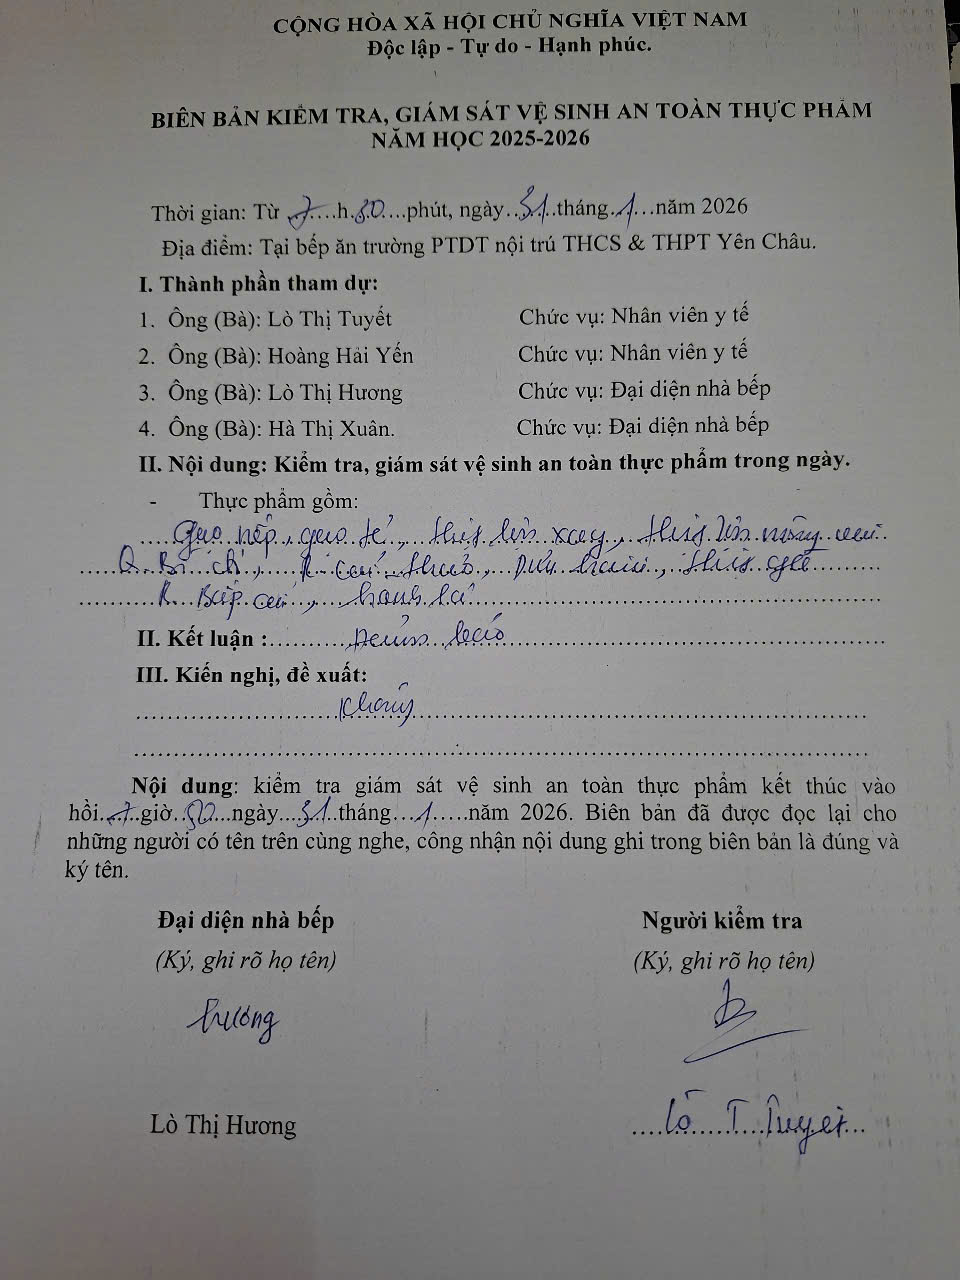 CỘNG HÒA XÃ HỘI CHỦ NGHĨA VIỆT NAM
Độc lập - Tự do - Hạnh phúc.
BIÊN BẢN KIỂM TRA, GIÁM SÁT VỆ SINH AN TOÀN THỰC PHẨM
NĂM HỌC 2025-2026
Thời gian: Từ 7 h 30 phút, ngày 31 tháng 1 năm 2026
Địa điểm: Tại bếp ăn trường PTDT nội trú THCS & THPT Yên Châu.
I. Thành phần tham dự:
1. Ông (Bà): Lò Thị Tuyết Chức vụ: Nhân viên y tế
2. Ông (Bà): Hoàng Hải Yến Chức vụ: Nhân viên y tế
3. Ông (Bà): Lò Thị Hương Chức vụ: Đại diện nhà bếp
4. Ông (Bà): Hà Thị Xuân. Chức vụ: Đại diện nhà bếp
II. Nội dung: Kiểm tra, giám sát vệ sinh an toàn thực phẩm trong ngày.
- Thực phẩm gồm:
Gạo nếp, gạo tẻ, thịt lợn xay, thịt lợn mông
Q. Bí, thịt gà
R. Bắp cải, hành lá
II. Kết luận : Đảm bảo
III. Kiến nghị, đề xuất:
Không
Nội dung: kiểm tra giám sát vệ sinh an toàn thực phẩm kết thúc vào
hồi 7 giờ 50 ngày 31 tháng 1 năm 2026. Biên bản đã được đọc lại cho
những người có tên trên cùng nghe, công nhận nội dung ghi trong biên bản là đúng và
ký tên.
Đại diện nhà bếp Người kiểm tra
(Ký, ghi rõ họ tên) (Ký, ghi rõ họ tên)
Hương
Lò Thị Hương Lò T Tuyết